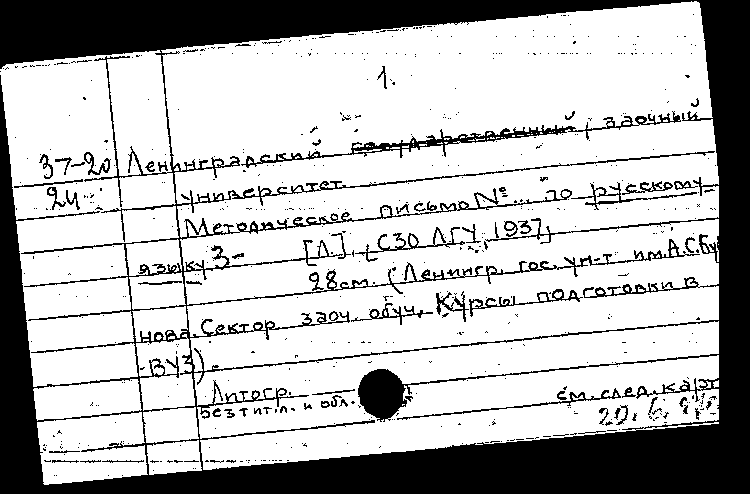 1.
37-20 Ленинградский государственный заочный
24 университет.
Методическое письмо № ... по русскому
языку 3- [Л.], [СЗО ЛГУ, 1937]
28см. (Ленингр. гос. ун-т им. А.С. Бу
нова. Сектор заоч. обуч. Курсы подготовки в
ВУЗ).
Литогр.
без тит. л. и обл.
см. след. карт
20. 6.